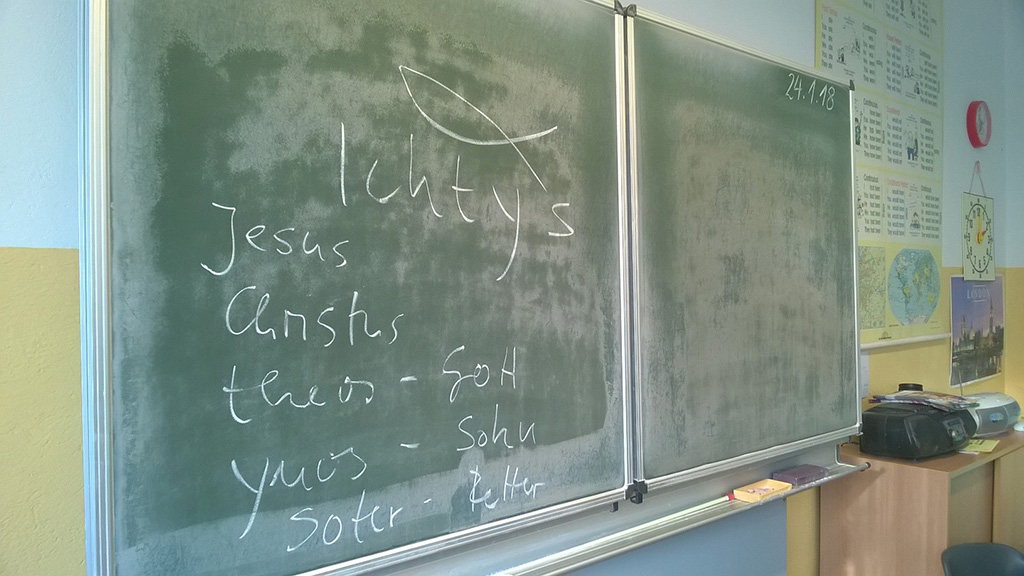 24.1.18
Ichtys
Jesus
Christus
theos - Gott
ynos - Sohn
soter - Retter